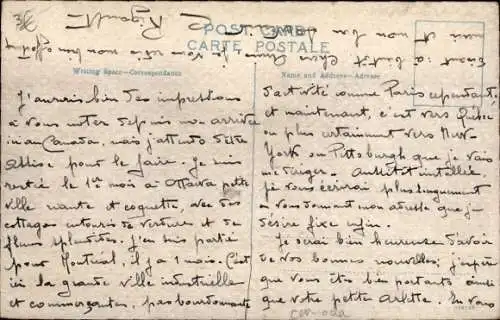 3€
POST CARD
CARTE POSTALE
Writing Space—Correspondance
Name and Address—Adresse
J'aurais bien des impressions
à vous noter depuis mon arrivée
ici au Canada, mais j'attends d'être
pour le faire. Je suis
restée le 1er mois à Ottawa petite
ville vivante et coquette avec des
cottages entourés de verdure et de
fleurs splendides. J'en suis partie
pour Montréal, il y a 1 mois. C'est
ici la grande ville industrielle
et commerçante, pas bourdonnante
d'activité comme Paris cependant
et maintenant, c'est vers Québec
ou plus certainement vers New
York ou Pittsburgh que je vais
me diriger. Aussitôt installée,
je vous écrirai plus longuement
en vous donnant mon adresse que je
désire fixe enfin.
Je serai bien heureuse d'avoir
de vos bonnes nouvelles; j'espère
que vous êtes bien portants ainsi
que votre petite Arlette. En vous
canada